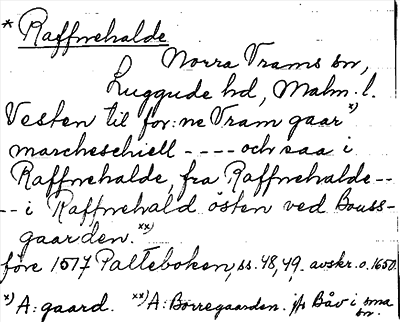 * Raffnehalde
Norra Vrams sn,
Luggude hd, Malm. l.
Vesten til for:ne Vram gaar x)
marcheschiell ---- och saa i
Raffnehalde, fra Raffnehalde --
-- i Raffnehald östen ved Bouss-
gaarden. xx)
före 1517 Palteboken, ss. 48, 49. avskr. o. 1650.
x) A: gaard. xx) A: Borregaarden. jfr Båv i sma
sn.